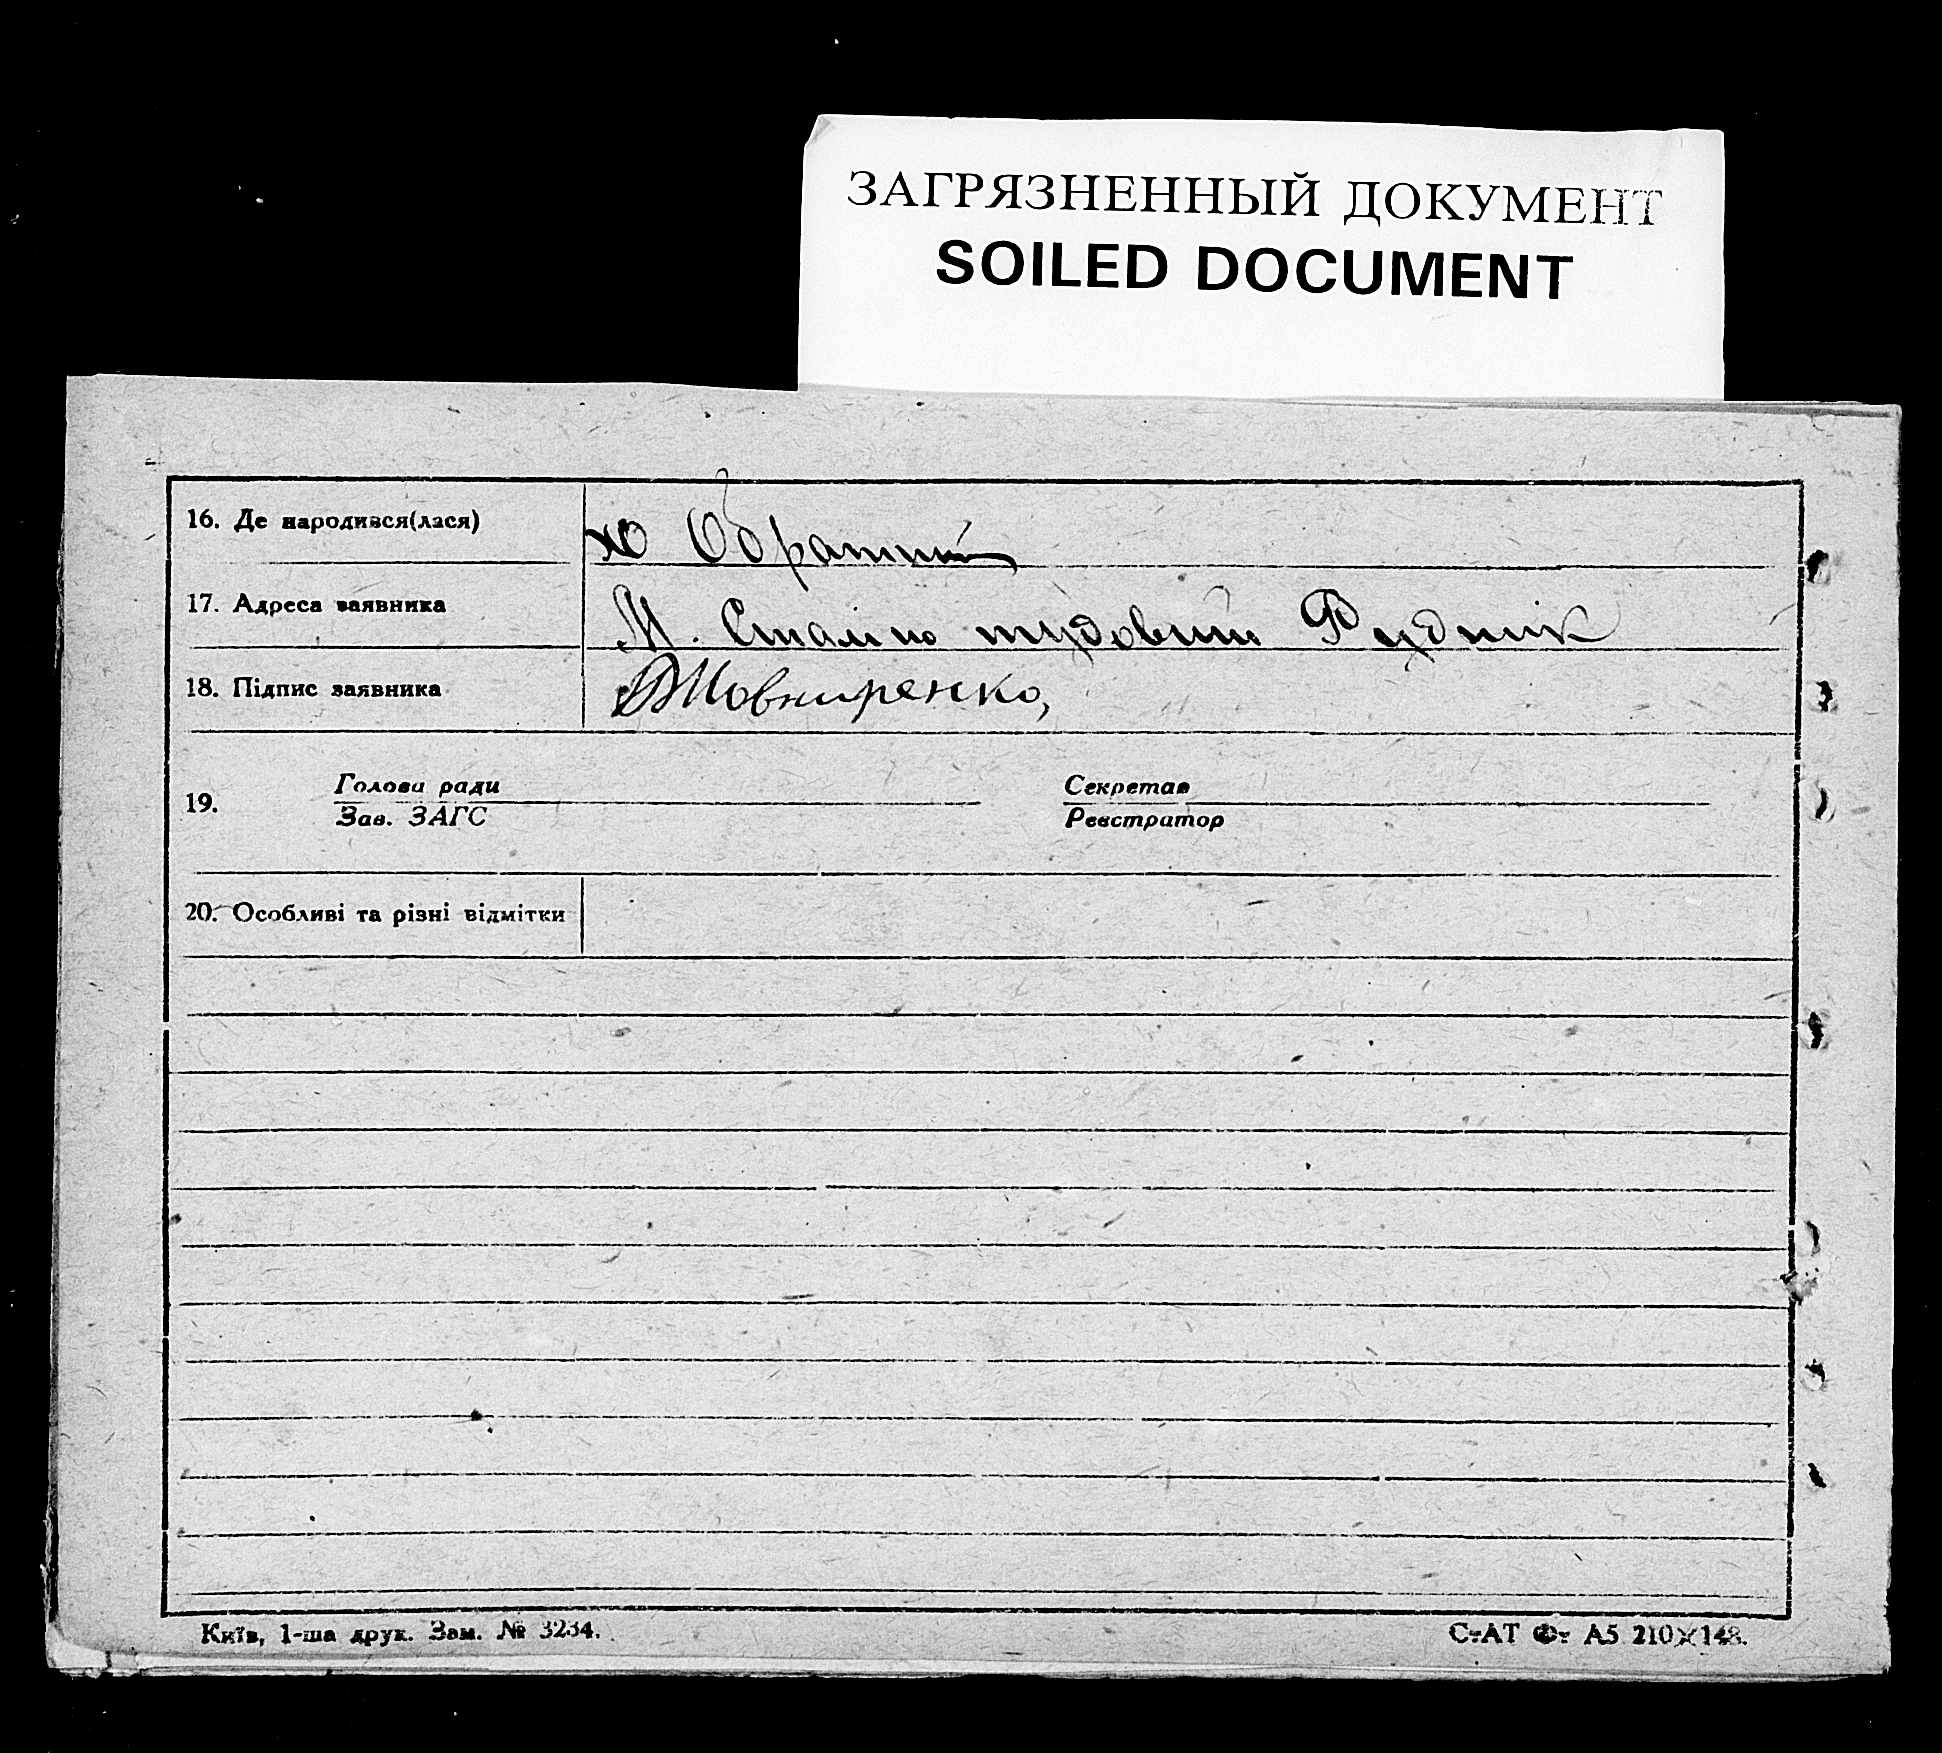 ЗАГРЯЗНЕННЫЙ ДОКУМЕНТ
SOILED DOCUMENT
16. Де народився(лася)
17. Адреса заявника
М. Сталіно Рудник
18. Підпис заявника
19. Голова ради Секретар
Зав. ЗАГС Реєстратор
20. Особливі та різні відмітки
Київ, 1-ша друк. Зам. № 3234.
СтАТ Фт А5 210×148.